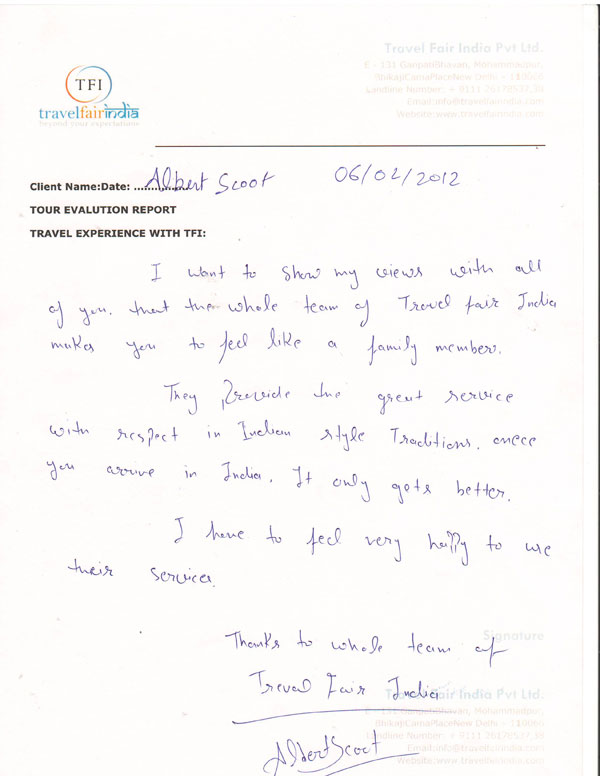 Travel Fair India Pvt Ltd.
E - 131 GanpatiBhavan, Mohammadpur,
BhikajiCamaPlaceNew Delhi - 110066
Landline Number: + 9111 26178537,38
Email:info@travelfairindia.com
Website:www.travelfairindia.com
TFI
travelfairindia
beyond your expectations
Client Name:Date: .............. Albert Scoot 06/02/2012
TOUR EVALUTION REPORT
TRAVEL EXPERIENCE WITH TFI:
I want to show my views with all
of you. that the whole team of Travel fair India
makes you to feel like a family member.
They Provide the great service
with respect in Indian style Traditions. once
you arrive in India. It only gets better.
I have to feel very happy to use
their service.
Thanks to whole team of
Signature
Treval Fair India
Travel Fair India Pvt Ltd.
E - 131 GanpatiBhavan, Mohammadpur,
BhikajiCamaPlaceNew Delhi - 110066
Landline Number: + 9111 26178537,38
Albert Scoot
Email:info@travelfairindia.com
Website:www.travelfairindia.com